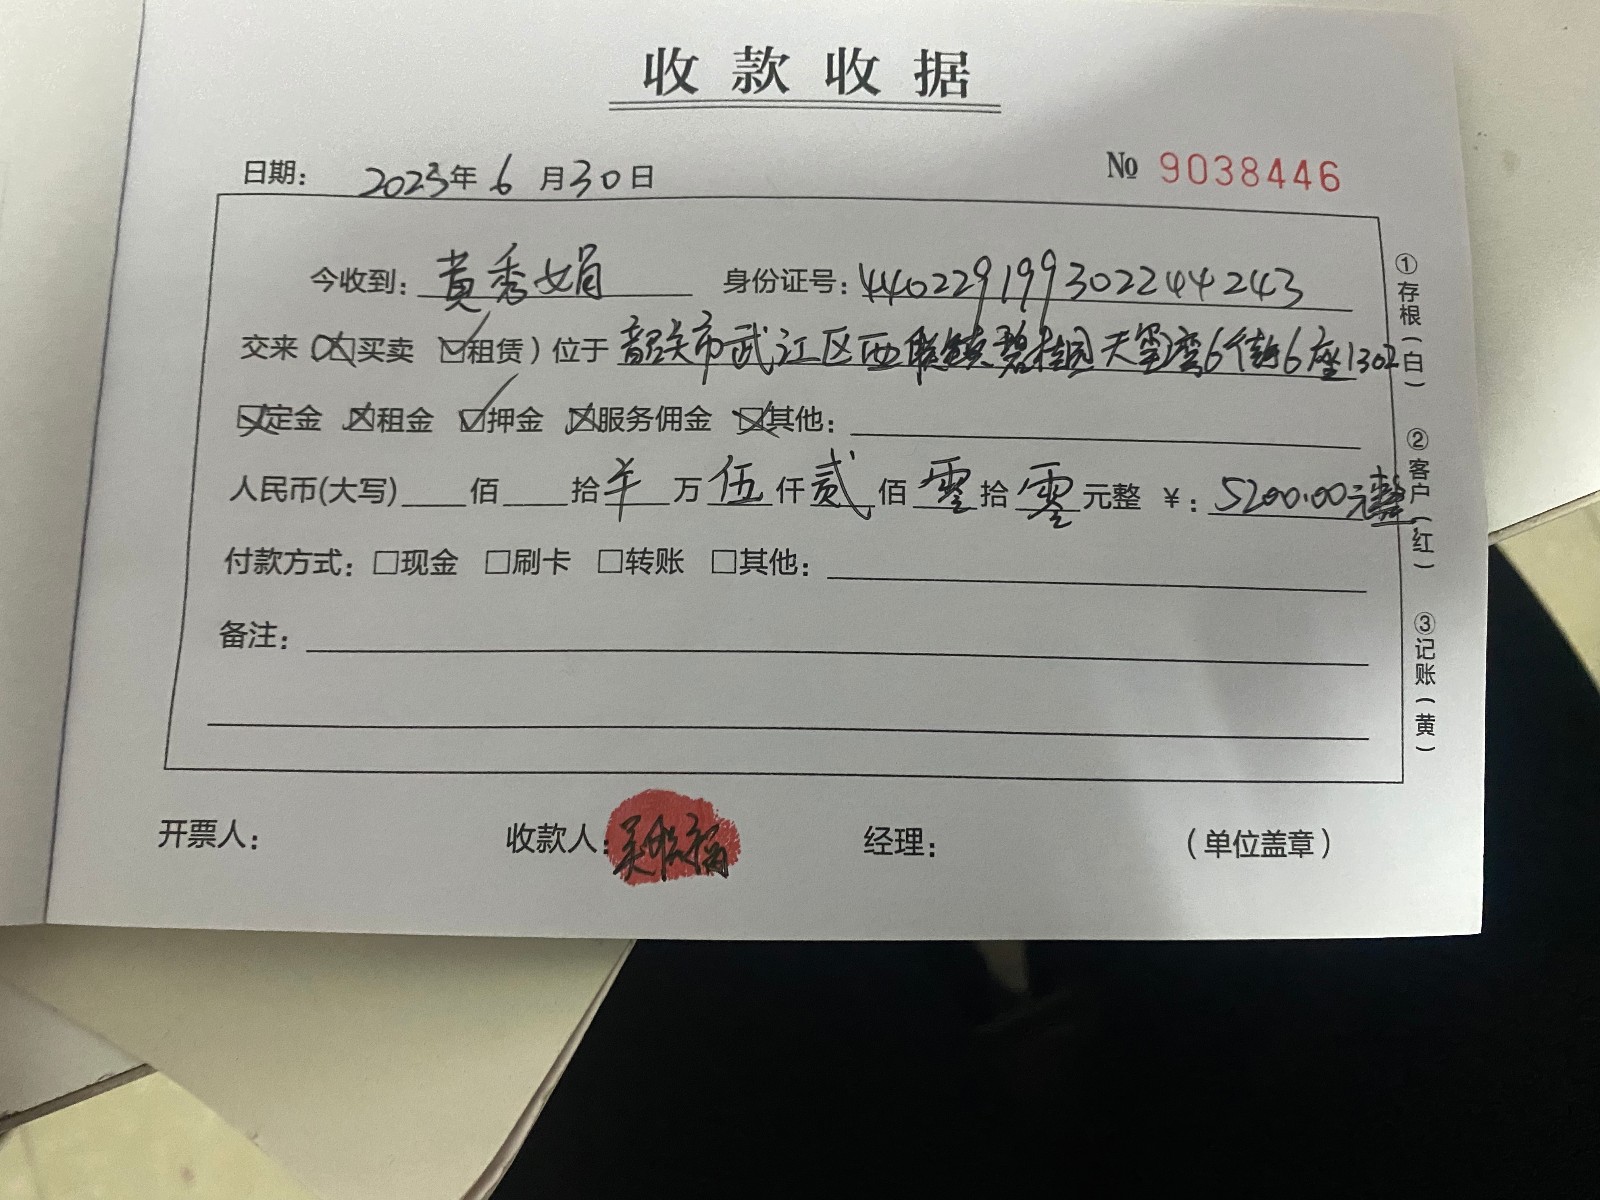 收款收据
日期： 2023年6月30日 № 9038446
今收到：黄秀娟 身份证号：440229199302244243
交来（☒买卖 ☑租赁）位于 韶关市武江区西联镇碧桂园天玺湾6街6座1302
☒定金 ☒租金 ☑押金 ☒服务佣金 ☒其他：
人民币(大写)____佰____拾¥万伍仟贰佰零拾零元整 ￥：5200.00元整
付款方式：□现金 □刷卡 □转账 □其他：
备注：
开票人： 收款人： 经理： （单位盖章）
①存根（白）
②客户（红）
③记账（黄）